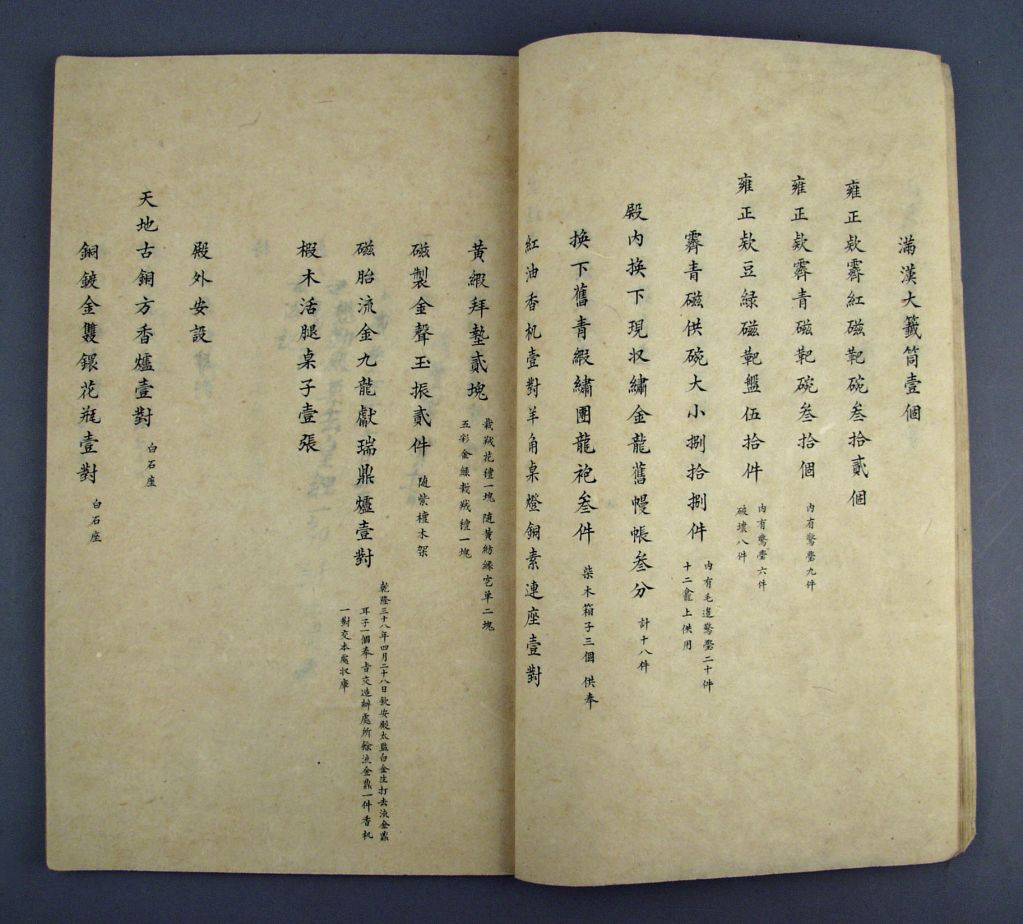 滿漢大籤筒壹個
雍正欵霽紅磁靶碗叁拾貳個
雍正欵霽青磁靶碗叁拾個
內有驚璺九件
雍正欵豆綠磁靶盤伍拾件
內有驚璺六件
破壞八件
霽青磁供碗大小捌拾捌件
內有毛邊驚璺二十件
十二龕上供用
殿內換下現収繡金龍舊幔帳叁分
計十八件
換下舊青緞繡團龍袍叁件
柴木箱子三個 供奉
紅油香机壹對羊角桌燈銅素連座壹對
黃緞拜墊貳塊
栽羢花氊一塊 隨黃紡絲宻單二塊
五彩金線栽羢氊一塊
磁製金聲玉振貳件
隨紫檀木架
磁胎流金九龍獻瑞鼎爐壹對
乾隆三十八年四月二十八日欽安殿太監白金生打去流金鼎
耳子一個奉旨交造辦處所餘流金鼎一件香机
一對交本處収庫
椴木活腿桌子壹張
殿外安設
天地古銅方香爐壹對
白石座
銅鍍金雙鐶花瓶壹對
白石座